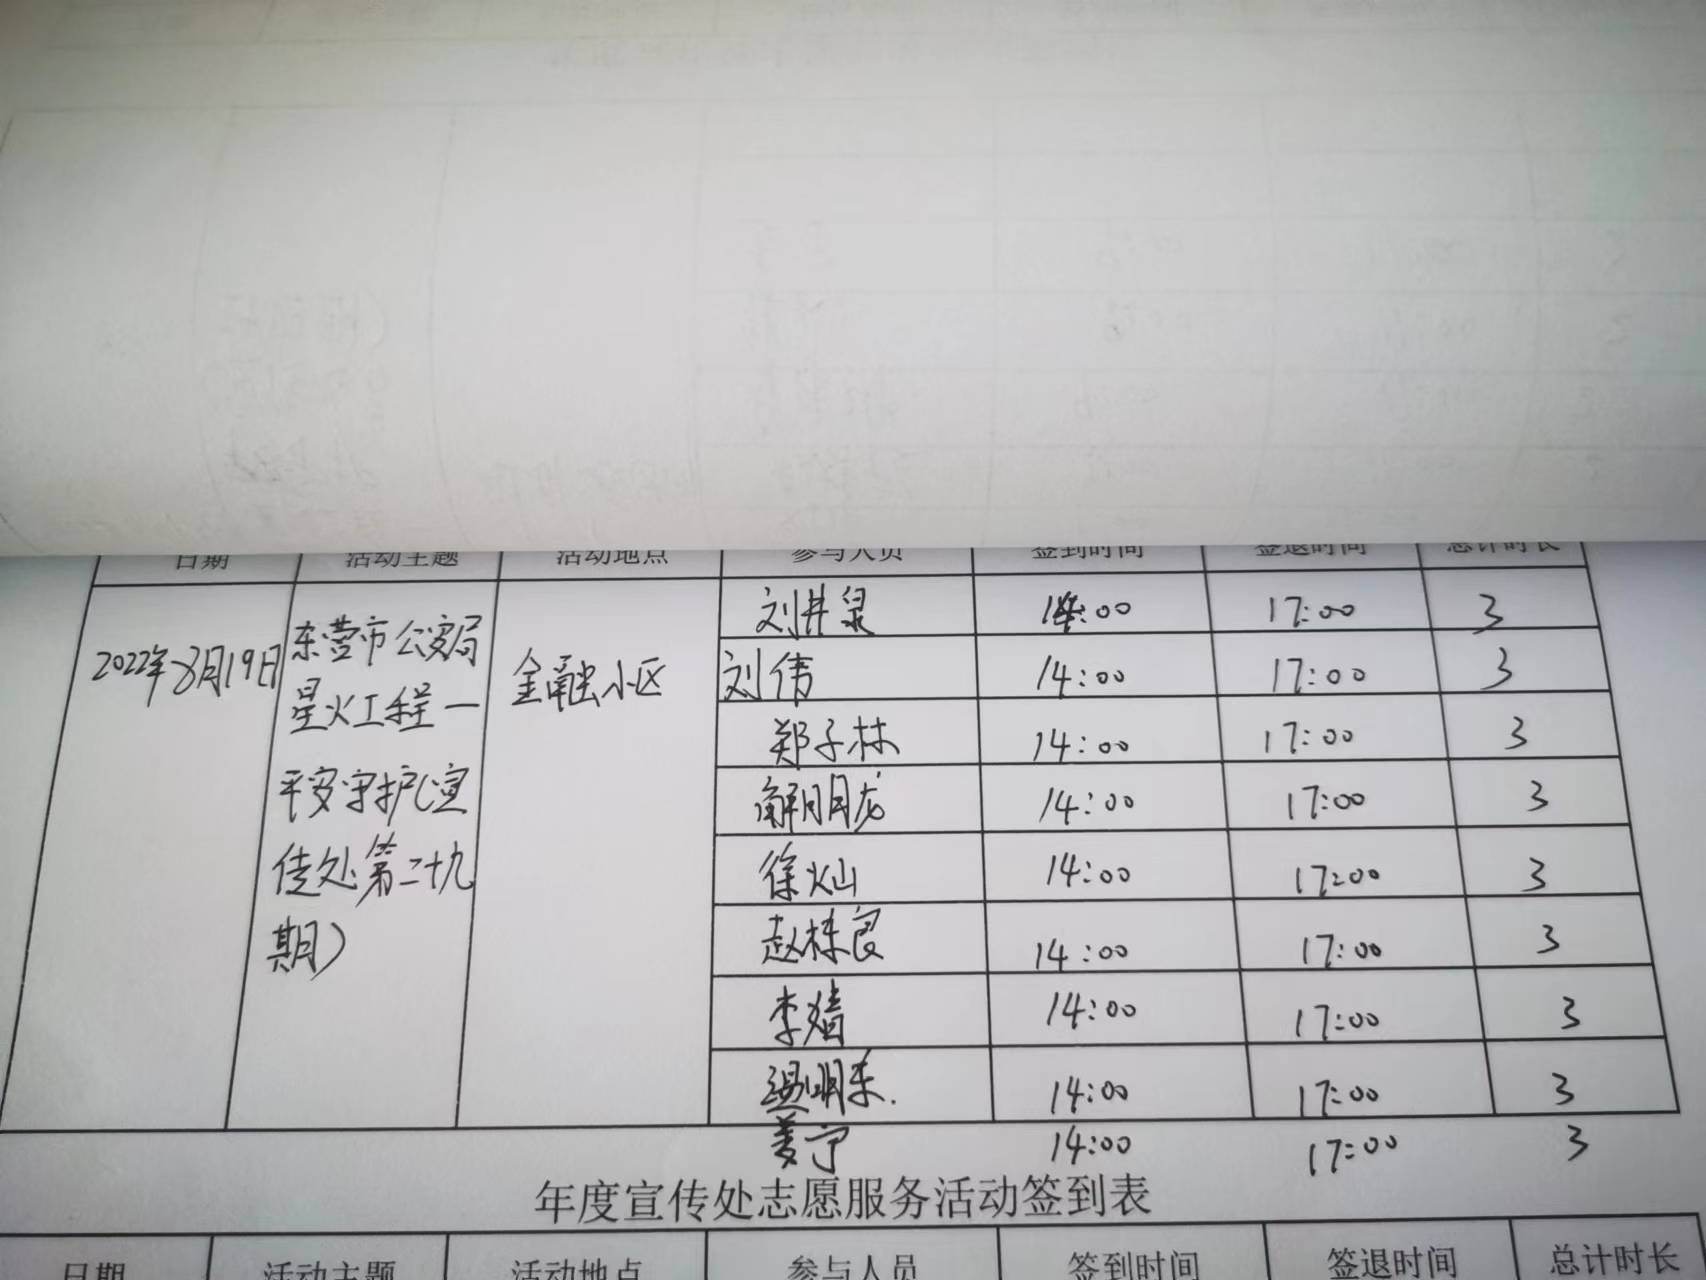 日期 活动主题 活动地点 参与人员 签到时间 签退时间 总计时长
2022年8月19日
东营市公安局
星火工程—
平安守护(宣
传处第二十九
期)
金融小区
刘井泉 14:00 17:00 3
刘伟 14:00 17:00 3
郑子林 14:00 17:00 3
解明龙 14:00 17:00 3
徐灿 14:00 17:00 3
赵栋良 14:00 17:00 3
李嫱 14:00 17:00 3
温明东 14:00 17:00 3
姜宁 14:00 17:00 3
年度宣传处志愿服务活动签到表
日期 活动主题 活动地点 参与人员 签到时间 签退时间 总计时长